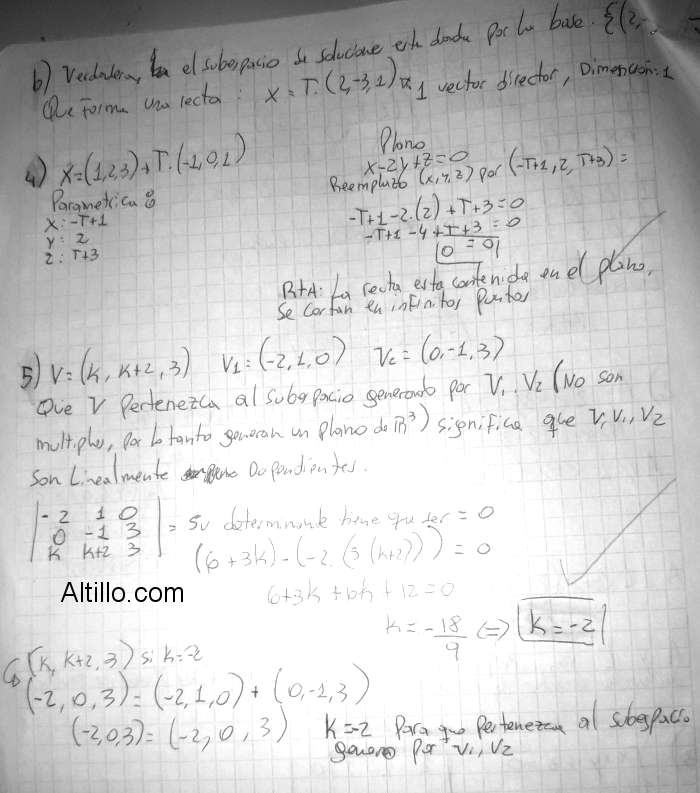 b) Verdadera, el subespacio de soluciones esta dada por la base. {(2,-
Que forma una recta: X = T.(2,-3,1) 1 vector director, Dimension:1
4) X=(1,2,3)+T.(-1,0,1)
Parametrica:
X: -T+1
Y: 2
Z: T+3
Plano
X-2Y+Z=0
Reemplazo (x,y,z) por (-T+1,2,T+3) =
-T+1-2.(2)+T+3=0
-T+1-4+T+3=0
0 = 0
RTA: La recta esta contenida en el plano,
Se cortan en infinitos puntos
5) V=(k, k+2, 3) V1=(-2,1,0) V2=(0,-1,3)
Que V Pertenezca al subespacio generado por V1, V2 (No son
multiplos, por lo tanto generan un plano de R³) significa que V, V1, V2
son Linealmente Dependientes.
|-2 1 0|
|0 -1 3| = Su determinante tiene que ser = 0
|k k+2 3|
(6+3k)-(-2.(3(k+2))) = 0
6+3k+6k+12=0
k = -18/9 <=> k=-2
Altillo.com
(k, k+2, 3) si k=-2
(-2,0,3)=(-2,1,0)+(0,-1,3)
(-2,0,3)=(-2,0,3) K=-2 Para que pertenezca al subespacio
genero por V1, V2